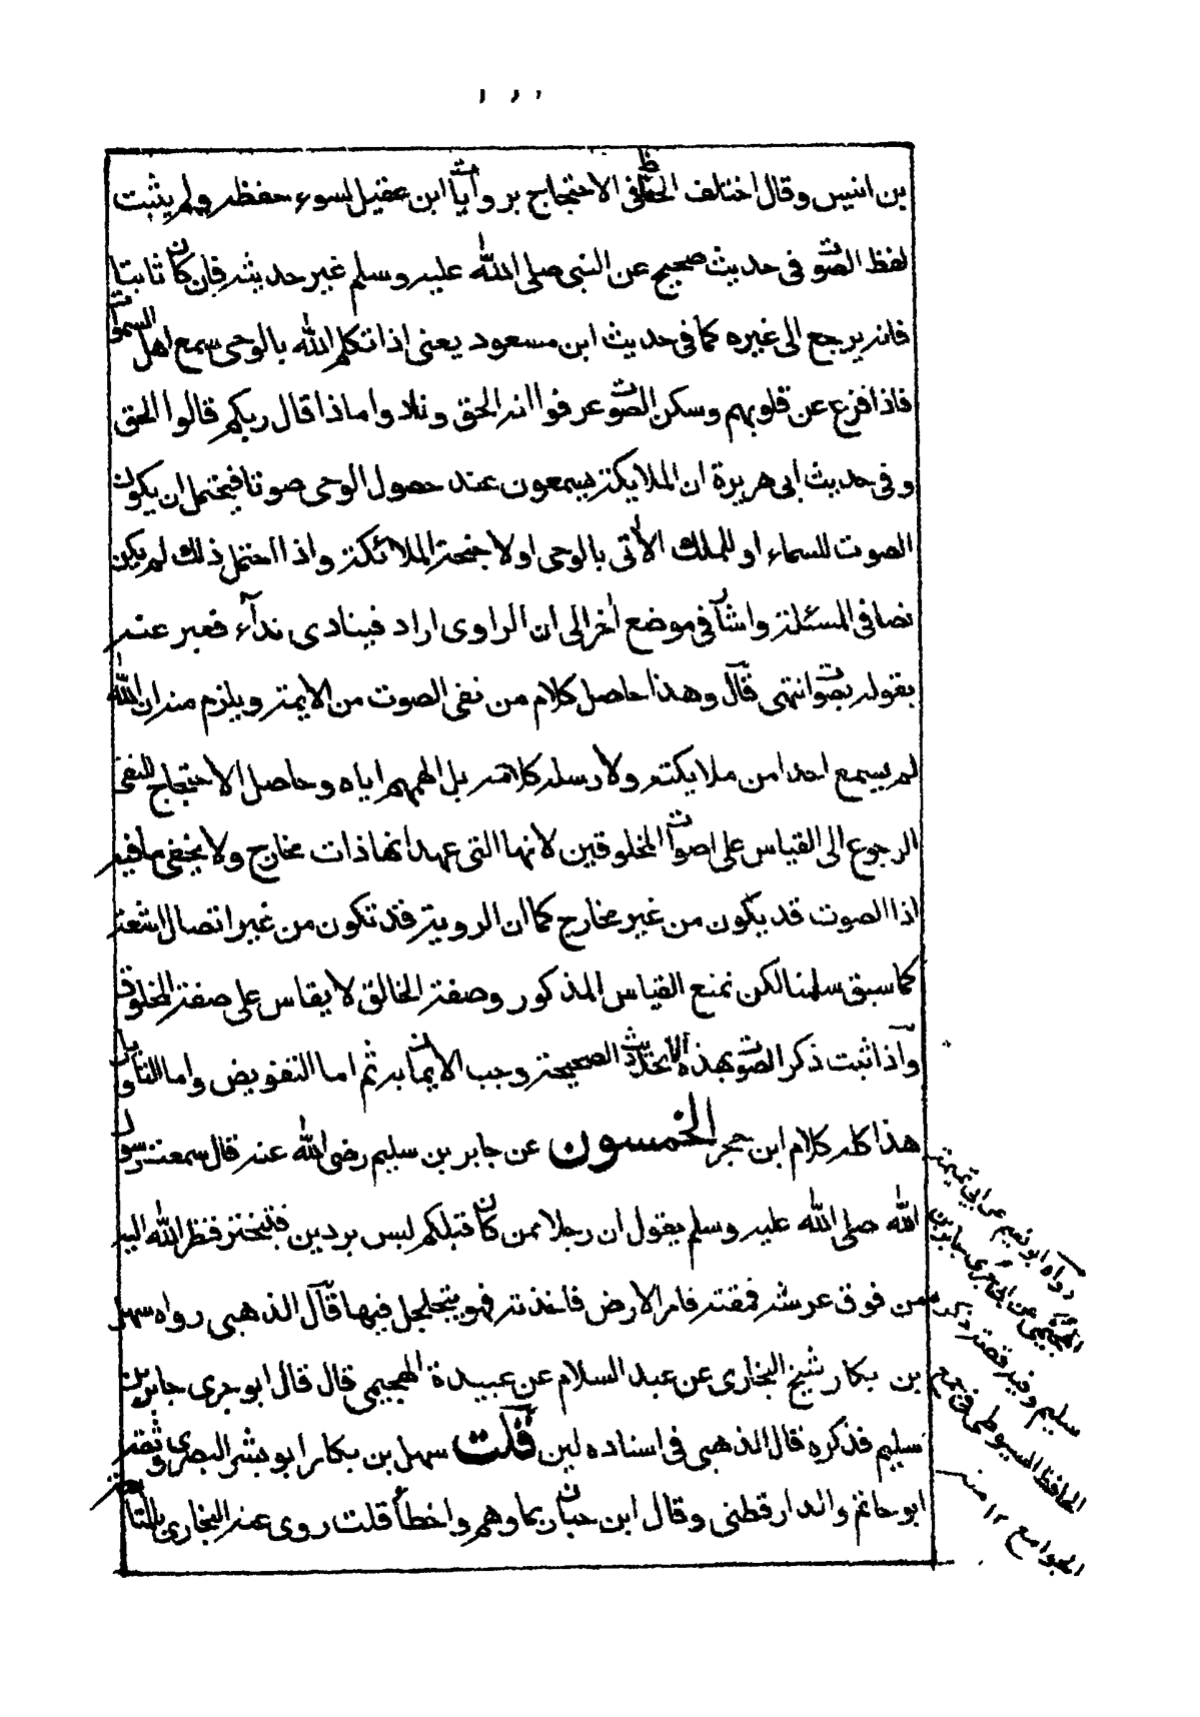 بن انيس وقال اختلف الحفاظ فى الاحتجاج بروايات ابن عقيل لسوء حفظه ولم يثبت
لفظ الصوت فى حديث صحيح عن النبى صلى الله عليه وسلم غير حديثه فان كان ثابتا
فانه يرجع الى غيره كما فى حديث ابن مسعود يعنى اذا تكلم الله بالوحى سمع اهل السموات
فاذا فزع عن قلوبهم وسكن الصوت عرفوا انه الحق ونادوا ماذا قال ربكم قالوا الحق
وفى حديث ابى هريرة ان الملايكة يسمعون عند حصول الوحى صوتا فيحتمل ان يكون
الصوت للسماء او للملك الآتى بالوحى او لاجنحة الملائكة واذا احتمل ذلك لم يكن
نصا فى المسئلة واشار فى موضع اخر الى ان الراوى اراد فينادى نداء فعبر عنه
بقوله بصوت انتهى قال وهذا حاصل كلام من نفى الصوت من الايمة ويلزم منه ان الله
لم يسمع احدا من ملايكته ولا رسله كلامه بل الهمهم اياه وحاصل الاحتجاج للنفى
الرجوع الى القياس على اصوات المخلوقين لانها التى عهد انها ذات مخارج ولا يخفى ما فيه
اذ الصوت قد يكون من غير مخارج كما ان الروية قد تكون من غير اتصال اشعة
كما سبق سلمنا لكن نمنع القياس المذكور وصفة الخالق لا يقاس على صفة المخلوق
واذا ثبت ذكر الصوت بهذه الاحاديث الصحيحة وجب الايمان به ثم اما التفويض واما التاويل
هذا كله كلام ابن حجر الخمسون عن جابر بن سليم رضى الله عنه قال سمعت رسول
الله صلى الله عليه وسلم يقول ان رجلا ممن كان قبلكم لبس بردين فتبختر فنظر الله اليه
من فوق عرشه فمقته فامر الارض فاخذته فهو يتجلجل فيها قال الذهبى رواه سهل
بن بكار شيخ البخارى عن عبد السلام عن عبيدة الهجيمى قال قال ابو جرى جابر بن
سليم فذكره قال الذهبى فى اسناده لين قلت سهل بن بكار ابو بشر البصرى وثقه
ابو حاتم والدارقطنى وقال ابن حبان ربما وهم واخطأ قلت روى عنه البخارى
رواه ابو نعيم عن ابى تميمة
الهجيمى عن ابى جرى جابر بن
سليم وفيه قصة ذكره
الحافظ السيوطى فى جمع
الجوامع ١٢ منه